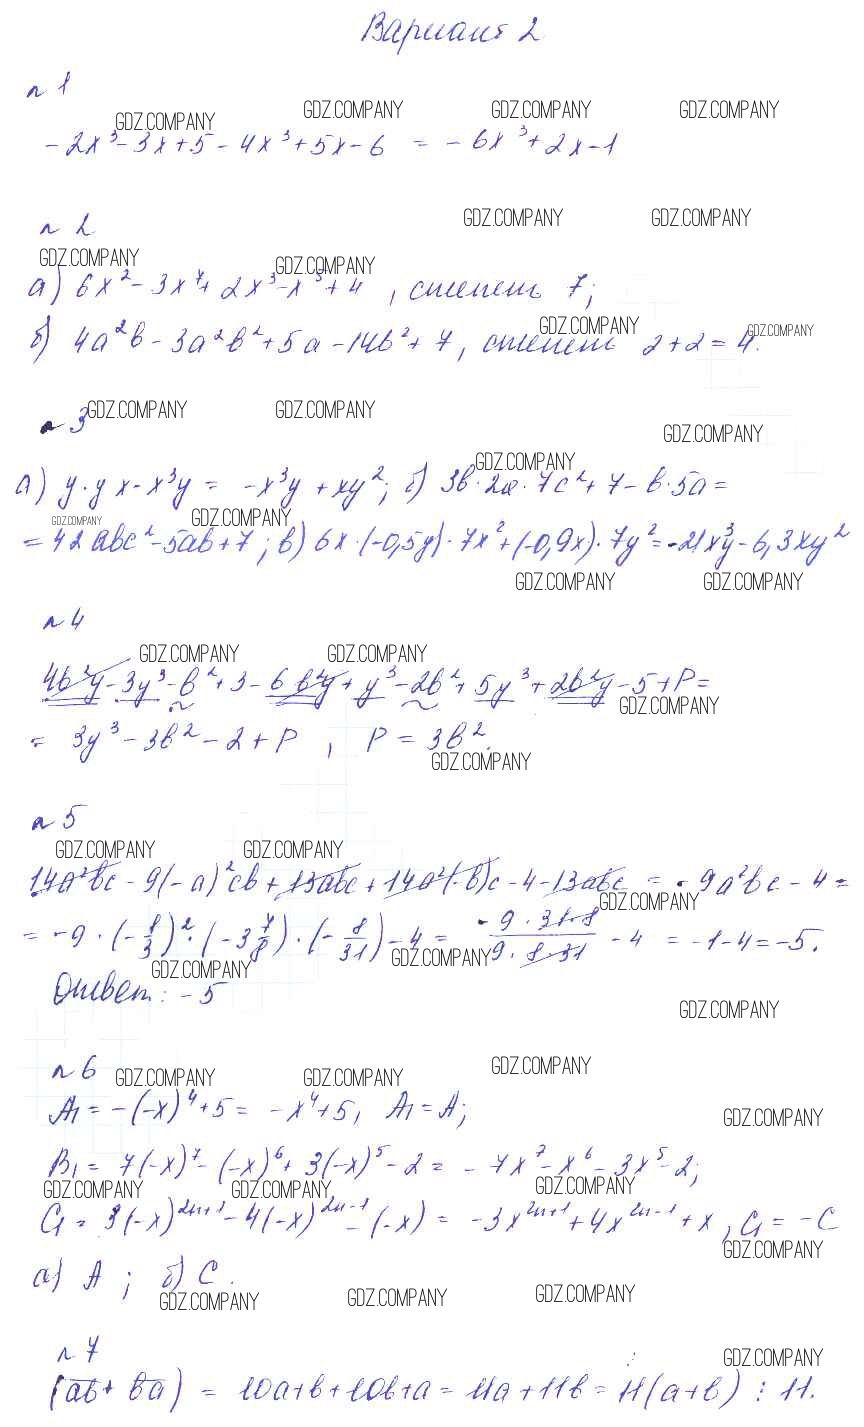 Вариант 2
n 1
GDZ.COMPANY GDZ.COMPANY GDZ.COMPANY GDZ.COMPANY
-2x³-3x+5-4x³+5x-6 = -6x³+2x-1
n 2 GDZ.COMPANY GDZ.COMPANY
GDZ.COMPANY GDZ.COMPANY
а) 6x²-3x⁷+2x³-x⁵+4 , степень 7;
GDZ.COMPANY GDZ.COMPANY
б) 4a²b-3a²b²+5a-14b²+7, степень 2+2=4.
n 3 GDZ.COMPANY GDZ.COMPANY GDZ.COMPANY
GDZ.COMPANY
а) y·yx-x³y = -x³y+xy²; б) 3b·2a·7c²+7-b·5a=
GDZ.COMPANY GDZ.COMPANY
=42abc²-5ab+7; в) 6x·(-0,5y)·7x²+(-0,9x)·7y²=-21x³y-6,3xy²
GDZ.COMPANY GDZ.COMPANY
n 4
GDZ.COMPANY GDZ.COMPANY
4b²y-3y³-b²+3-6b²y+y³-2b²+5y³+2b²y-5+P=
GDZ.COMPANY
= 3y³-3b²-2+P , P=3b².
GDZ.COMPANY
n 5
GDZ.COMPANY GDZ.COMPANY
14a²bc-9(-a)²cb+13abc+14a²(-b)c-4-13abc = -9a²bc-4=
GDZ.COMPANY
= -9·(-1/3)²·(-3 7/8)·(-8/31)-4 = -9·31·8/9·8·31 -4 = -1-4=-5.
GDZ.COMPANY GDZ.COMPANY
Ответ: -5
GDZ.COMPANY
n 6 GDZ.COMPANY GDZ.COMPANY GDZ.COMPANY
A₁=-(-x)⁴+5= -x⁴+5, A₁=A;
GDZ.COMPANY
B₁= 7(-x)⁷-(-x)⁶+3(-x)⁵-2= -7x⁷-x⁶-3x⁵-2;
GDZ.COMPANY GDZ.COMPANY GDZ.COMPANY
C₁=3(-x)²ⁿ⁺¹-4(-x)²ⁿ⁻¹-(-x)= -3x²ⁿ⁺¹+4x²ⁿ⁻¹+x, C₁=-C
GDZ.COMPANY
а) A ; б) C.
GDZ.COMPANY GDZ.COMPANY GDZ.COMPANY
n 7
GDZ.COMPANY
(ab+ba) = 10a+b+10b+a=11a+11b=11(a+b) ⋮ 11.